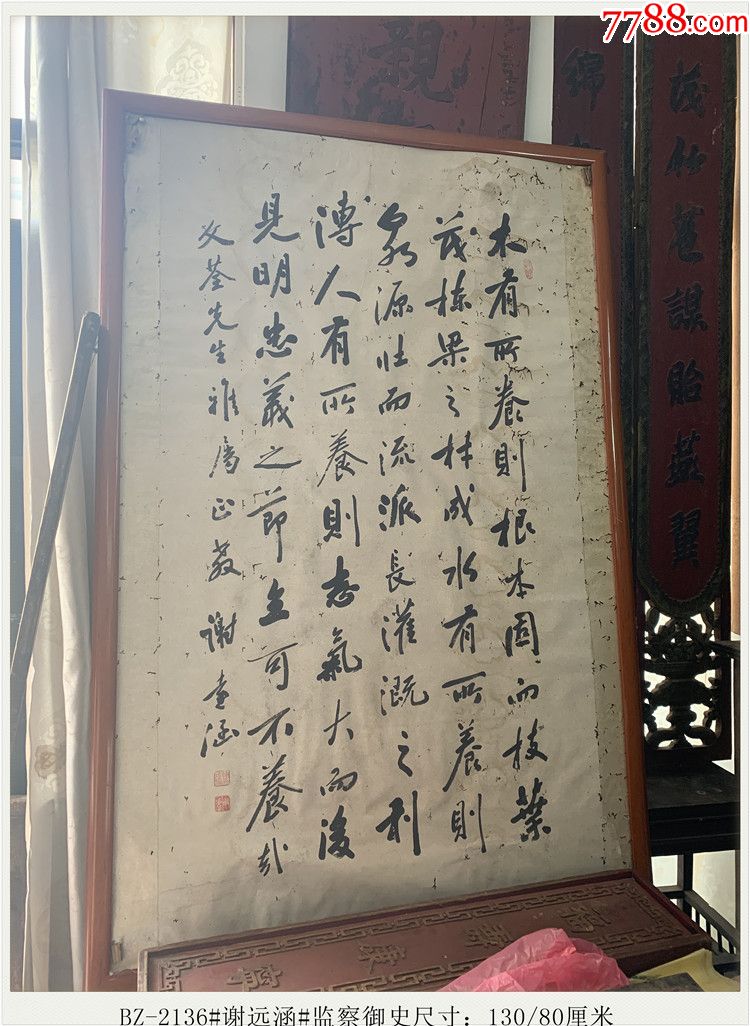 7788.com
親
綿
謀貽燕翼
木有所養則根本固而枝葉
茂棟梁之材成水有所養則
泉源壯而流派長灌溉之利
溥人有所養則志氣大而後
見明忠義之節全可不養哉
文荃先生雅屬正教 謝遠涵
BZ-2136#谢远涵#监察御史尺寸：130/80厘米